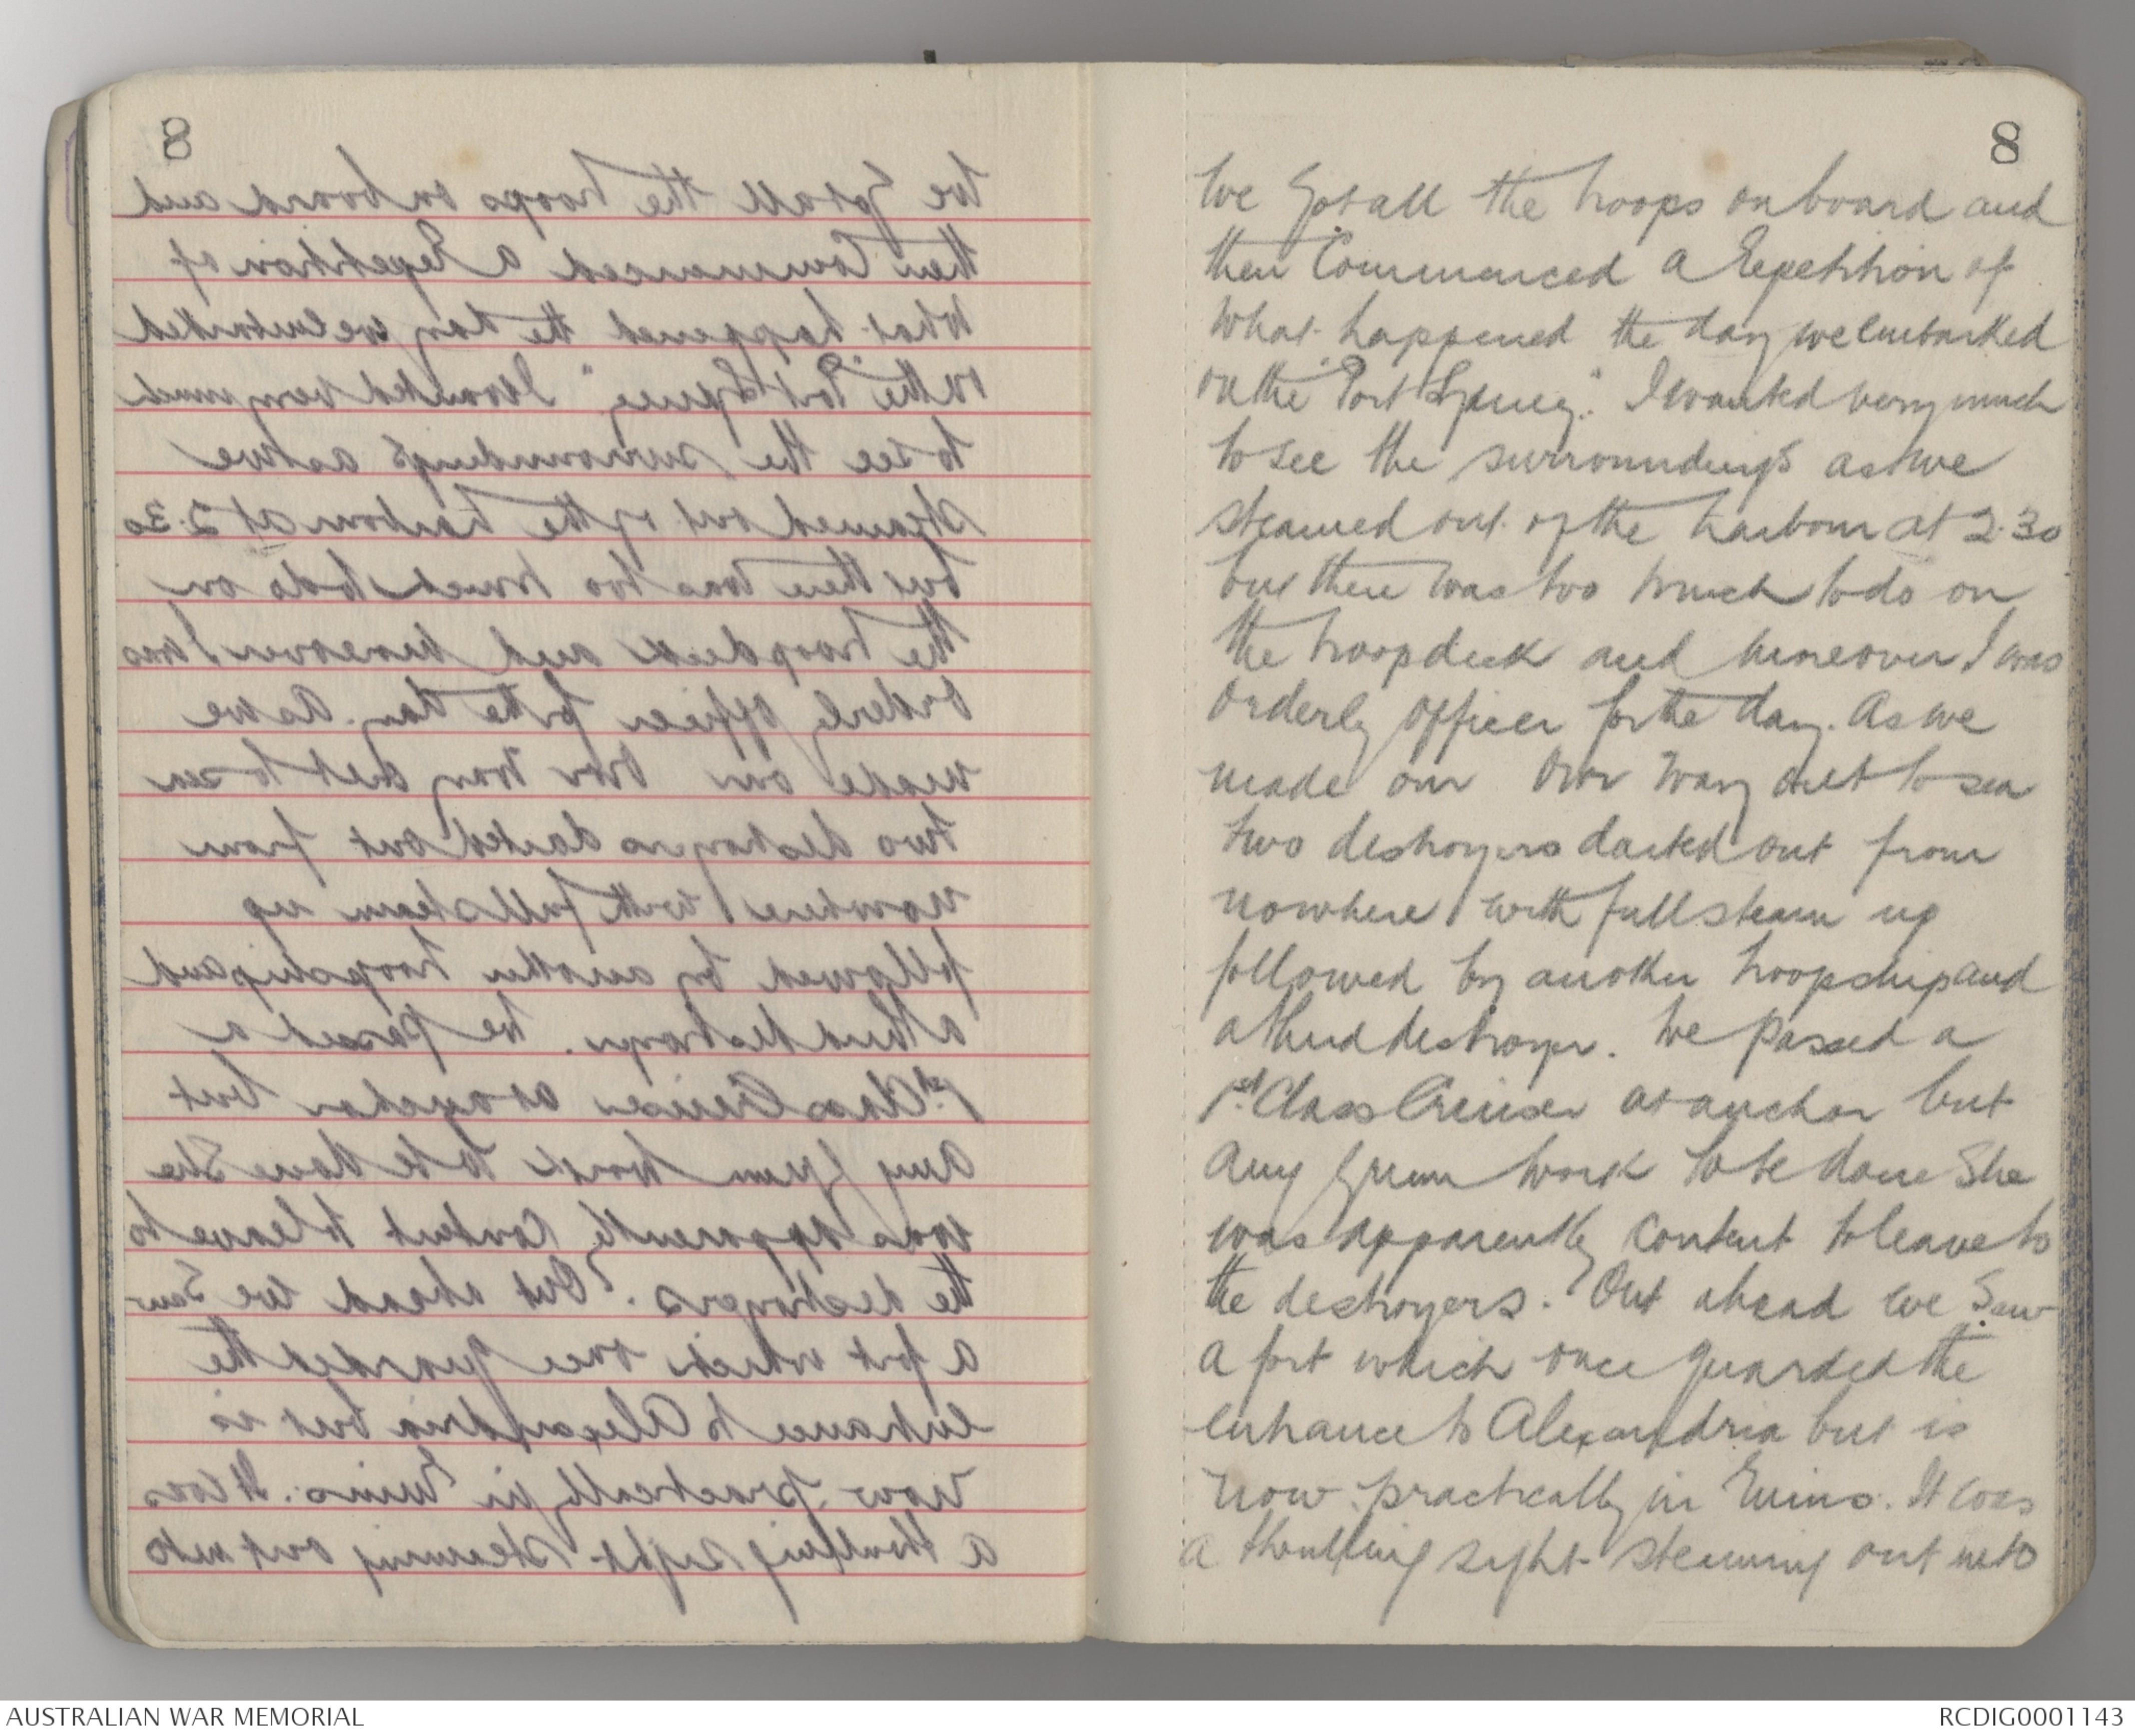 8
We Got all the troops on board and
then Commenced a Repetition of
what happened the day we embarked
on the "Port Sydney." I wanted very much
to see the surroundings as we
steamed out of the harbour at 2.30
but there was too much to do on
the troopdeck and moreover I was
Orderly Officer for the day. As we
made our own way out to sea
two destroyers darted out from
nowhere with full steam up
followed by another troopship and
a third destroyer. We passed a
1st Class Cruiser at anchor but
any grim work to be done She
was apparently content to leave to
the destroyers. Out ahead we Saw
a fort which once guarded the
entrance to Alexandria but is
now practically in Ruins. It was
a thrilling sight steaming out into
AUSTRALIAN WAR MEMORIAL
RCDIG0001143